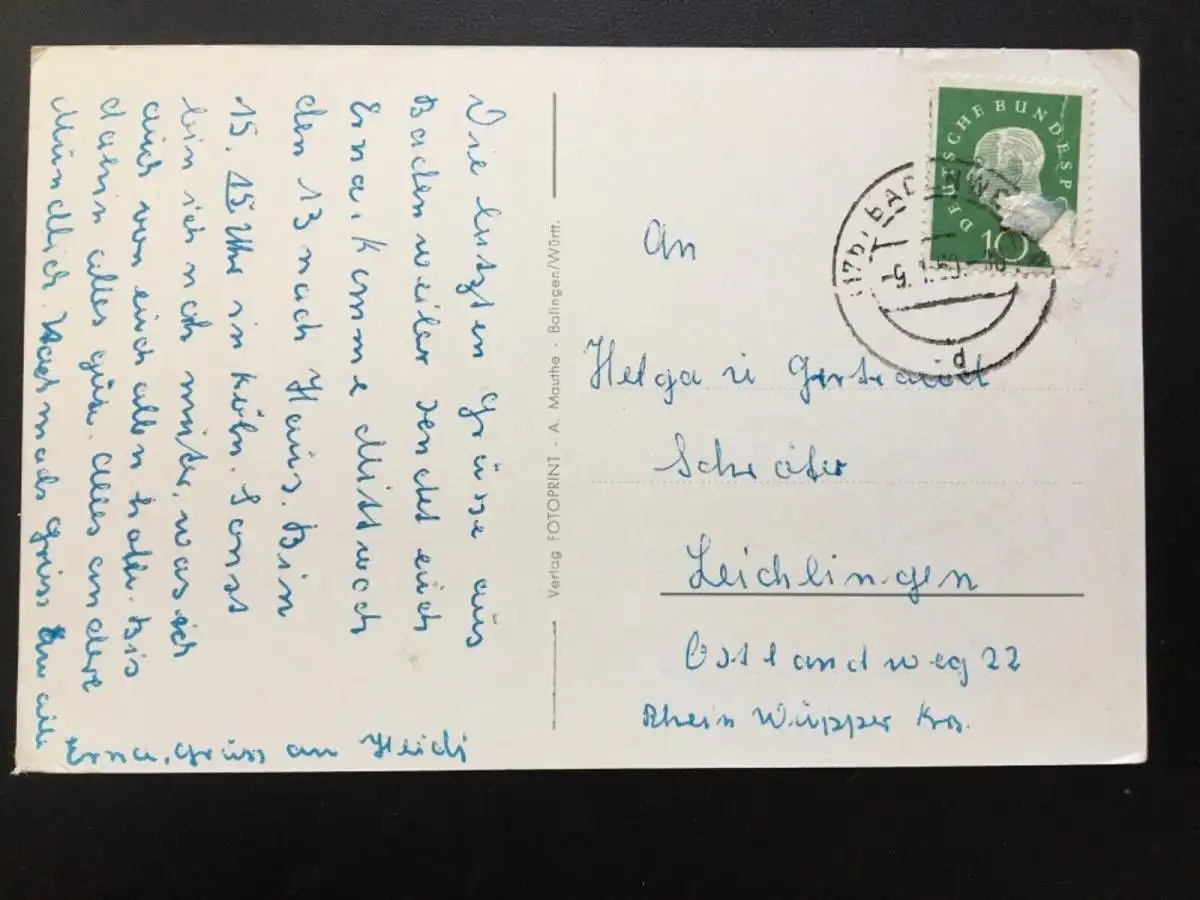 Die letzten Grüsse aus
Badenweiler sendet euch
Erna. Komme Mittwoch
den 13 nach Haus. Bin
15.15 Uhr in Köln. Sonst
bin ich noch munter, was ich
auch von euch allen hoffe. Bis
dahin alles gute. Alles andere
Mündlich. Nochmals Grüss
Erna. Gruss an Heidi
Verlag FOTOPRINT - A. Mauthe - Balingen/Württ.
DEUTSCHE BUNDESP
10
(17b) BADENWE
-9. 1.
An
Helga u Gertraud
Schräfer
Leichlingen
Ostlandweg 22
Rhein Wupper Krs.